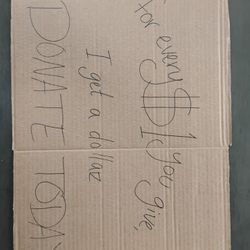 For every $1 you give,
I get a dollar
DONATE TODAY